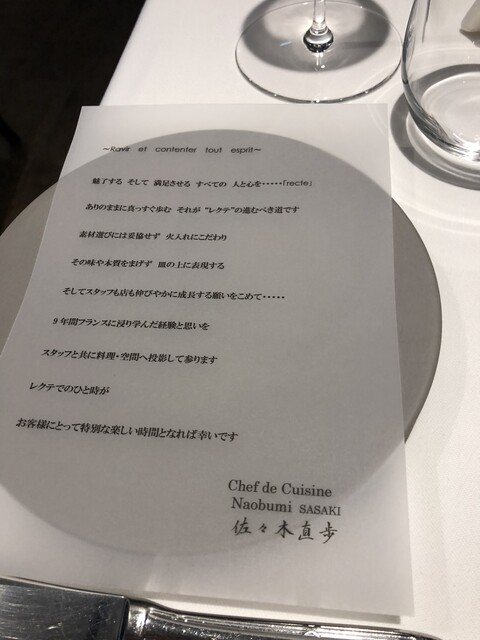 ~Ravir et contenter tout esprit~
魅了する そして 満足させる すべての 人と心を・・・・・「recte」
ありのままに真っすぐ歩む それが “レクテ”の進むべき道です
素材選びには妥協せず 火入れにこだわり
その味や本質をまげず 皿の上に表現する
そしてスタッフも店も伸びやかに成長する願いをこめて・・・・・
9年間フランスに浸り学んだ経験と思いを
スタッフと共に料理・空間へ投影して参ります
レクテでのひと時が
お客様にとって特別な楽しい時間となれば幸いです
Chef de Cuisine
Naobumi SASAKI
佐々木直歩